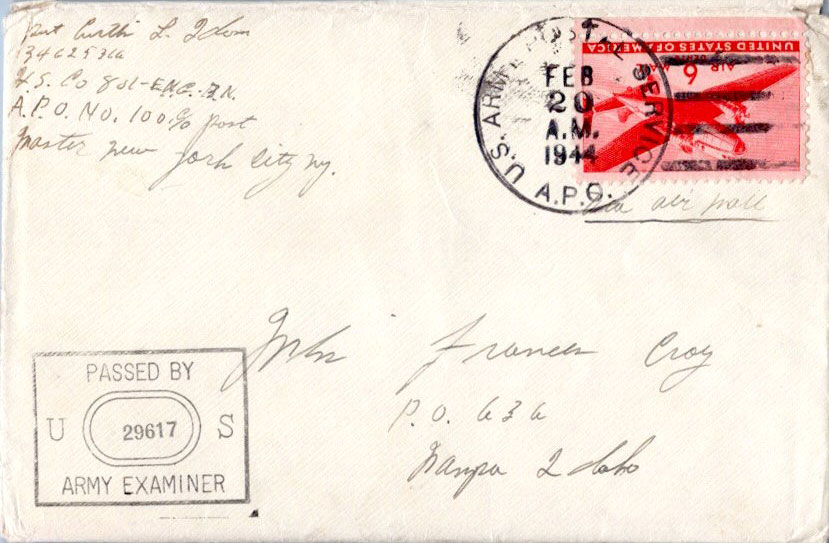 Pvt Curtis L. Idom
34625366
H.S. Co 801-ENG. BN.
A.P.O. No. 100 c/o post
master new york city ny.
U.S. ARMY POSTAL SERVICE
FEB
20
A.M.
1944
A.P.O.
UNITED STATES OF AMERICA
AIR MAIL
6
via air mail
Francis Croy
P.O. 636
Nampa Idaho
PASSED BY
U 29617 S
ARMY EXAMINER